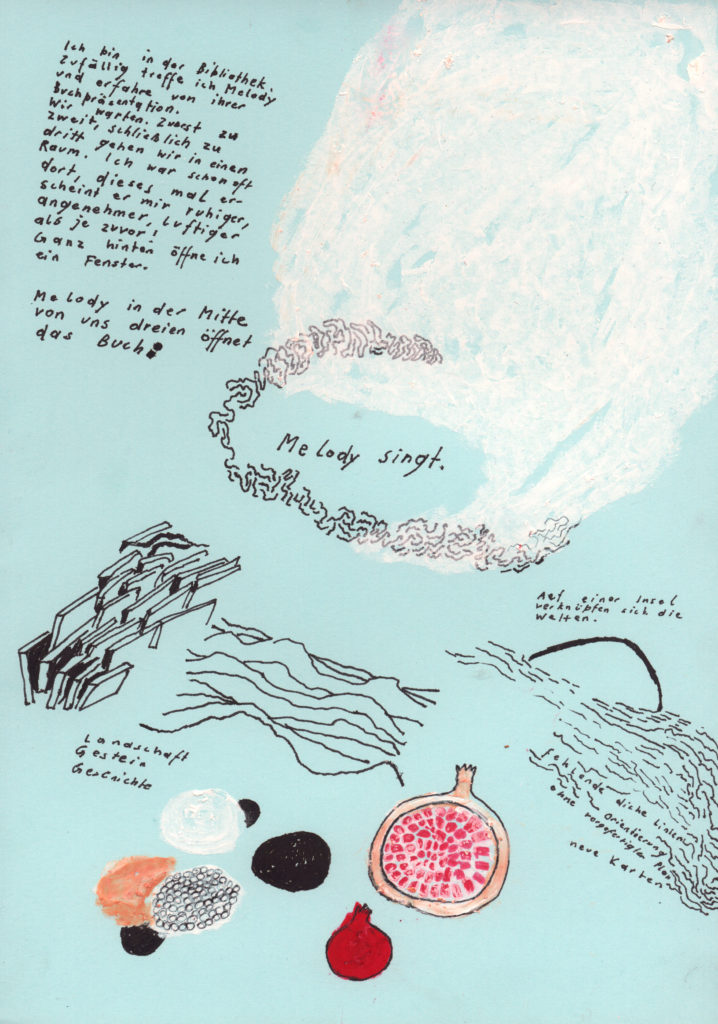 Ich bin in der Bibliothek.
Zufällig treffe ich Melody
und erfahre von ihrer
Buchpräsentation.
Wir warten. Zuerst zu
zweit, schließlich zu
dritt gehen wir in einen
Raum. Ich war schon oft
dort, dieses mal er-
scheint er mir ruhiger,
angenehmer, luftiger
als je zuvor.
Ganz hinten öffne ich
ein Fenster.
Melody in der Mitte
von uns dreien öffnet
das Buch:
Melody singt.
Auf einer Insel
verknüpfen sich die
Welten.
Landschaft
Gestein
Geschichte
fehlende dicke Linien
~ Orientierung
ohne vorgefertigten Plan
neue Karten